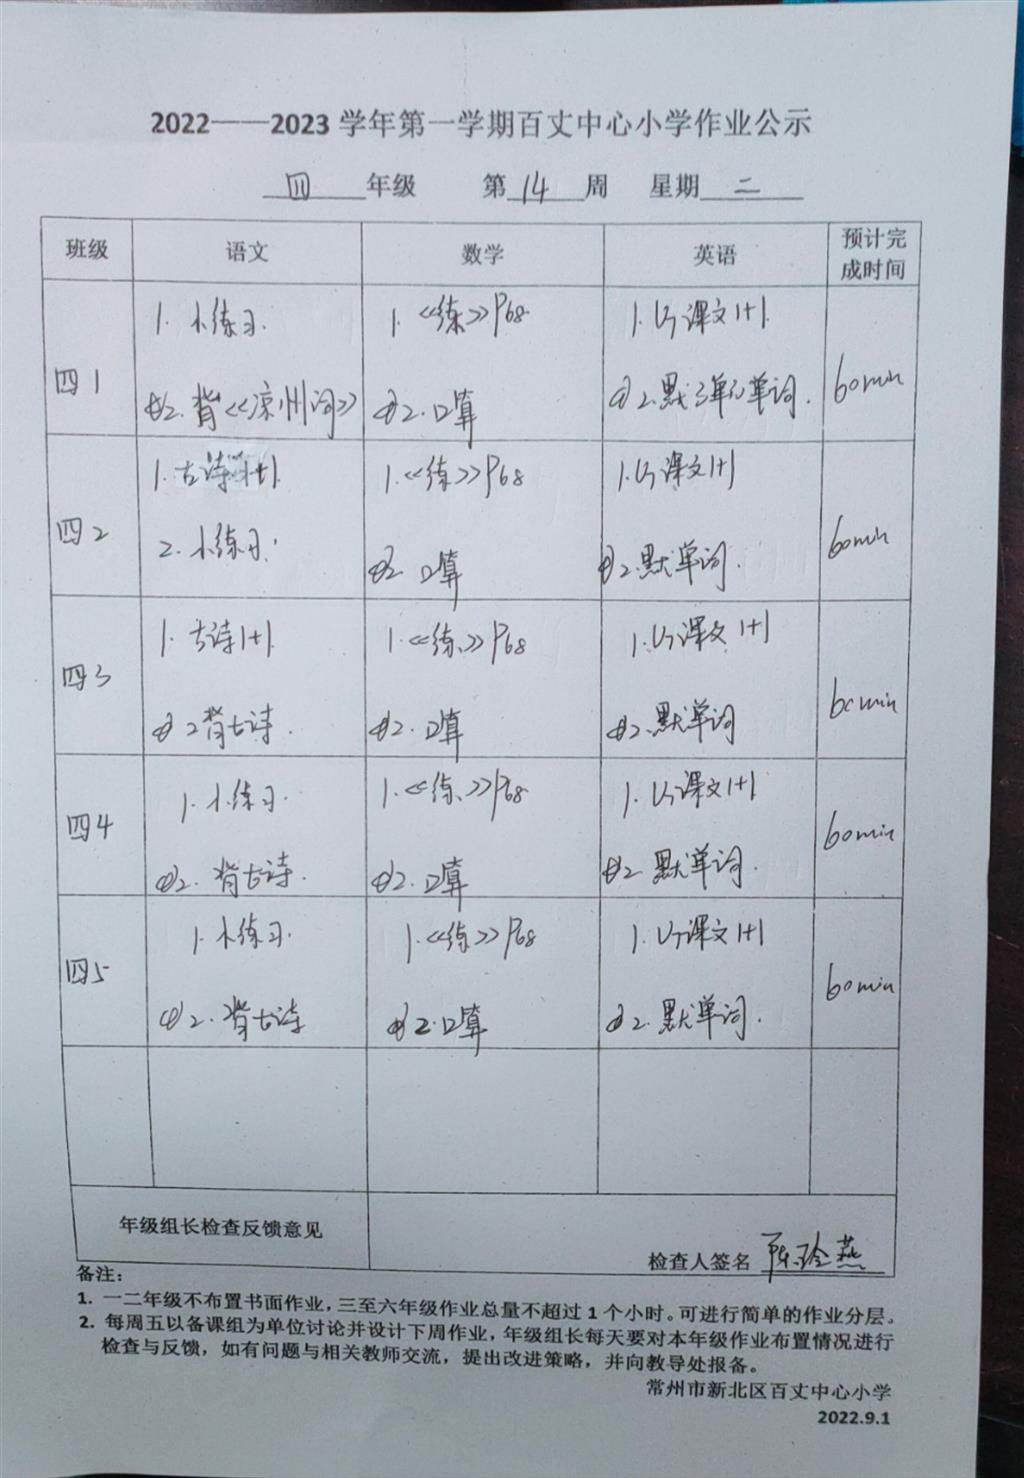 2022——2023 学年第一学期百丈中心小学作业公示
四 年级 第 14 周 星期 二
班级 语文 数学 英语 预计完成时间
四1
1. 小练习.
②2. 背《凉州词》
1.《练》P68
②2. 口算
1. U7课文1+1.
②2.默3单元单词.
60min
四2
1. 古诗1+1.
2. 小练习.
1.《练》P68
②2. 口算
1. U7课文1+1
②2.默单词.
60min
四3
1. 古诗1+1.
②2背古诗.
1.《练》P68
②2. 口算
1. U7课文1+1
②2.默单词
60min
四4
1. 小练习.
②2. 背古诗.
1.《练》P68
②2. 口算
1. U7课文1+1
②2. 默单词.
60min
四5
1. 小练习.
②2. 背古诗
1.《练》P68
②2. 口算
1. U7课文1+1
②2. 默单词.
60min
年级组长检查反馈意见
检查人签名 陈玲燕
备注:
1. 一二年级不布置书面作业,三至六年级作业总量不超过 1 个小时。可进行简单的作业分层。
2. 每周五以备课组为单位讨论并设计下周作业,年级组长每天要对本年级作业布置情况进行
检查与反馈,如有问题与相关教师交流,提出改进策略,并向教导处报备。
常州市新北区百丈中心小学
2022.9.1